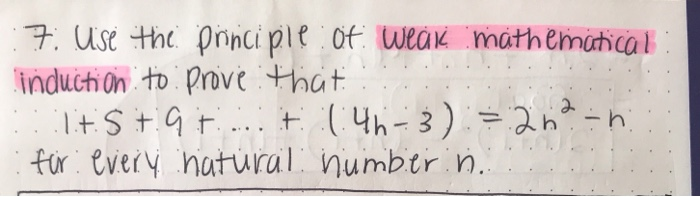 7. Use the principle of weak mathematical
induction to prove that
1 + 5 + 9 + ... + (4n - 3) = 2n² - n
for every natural number n.